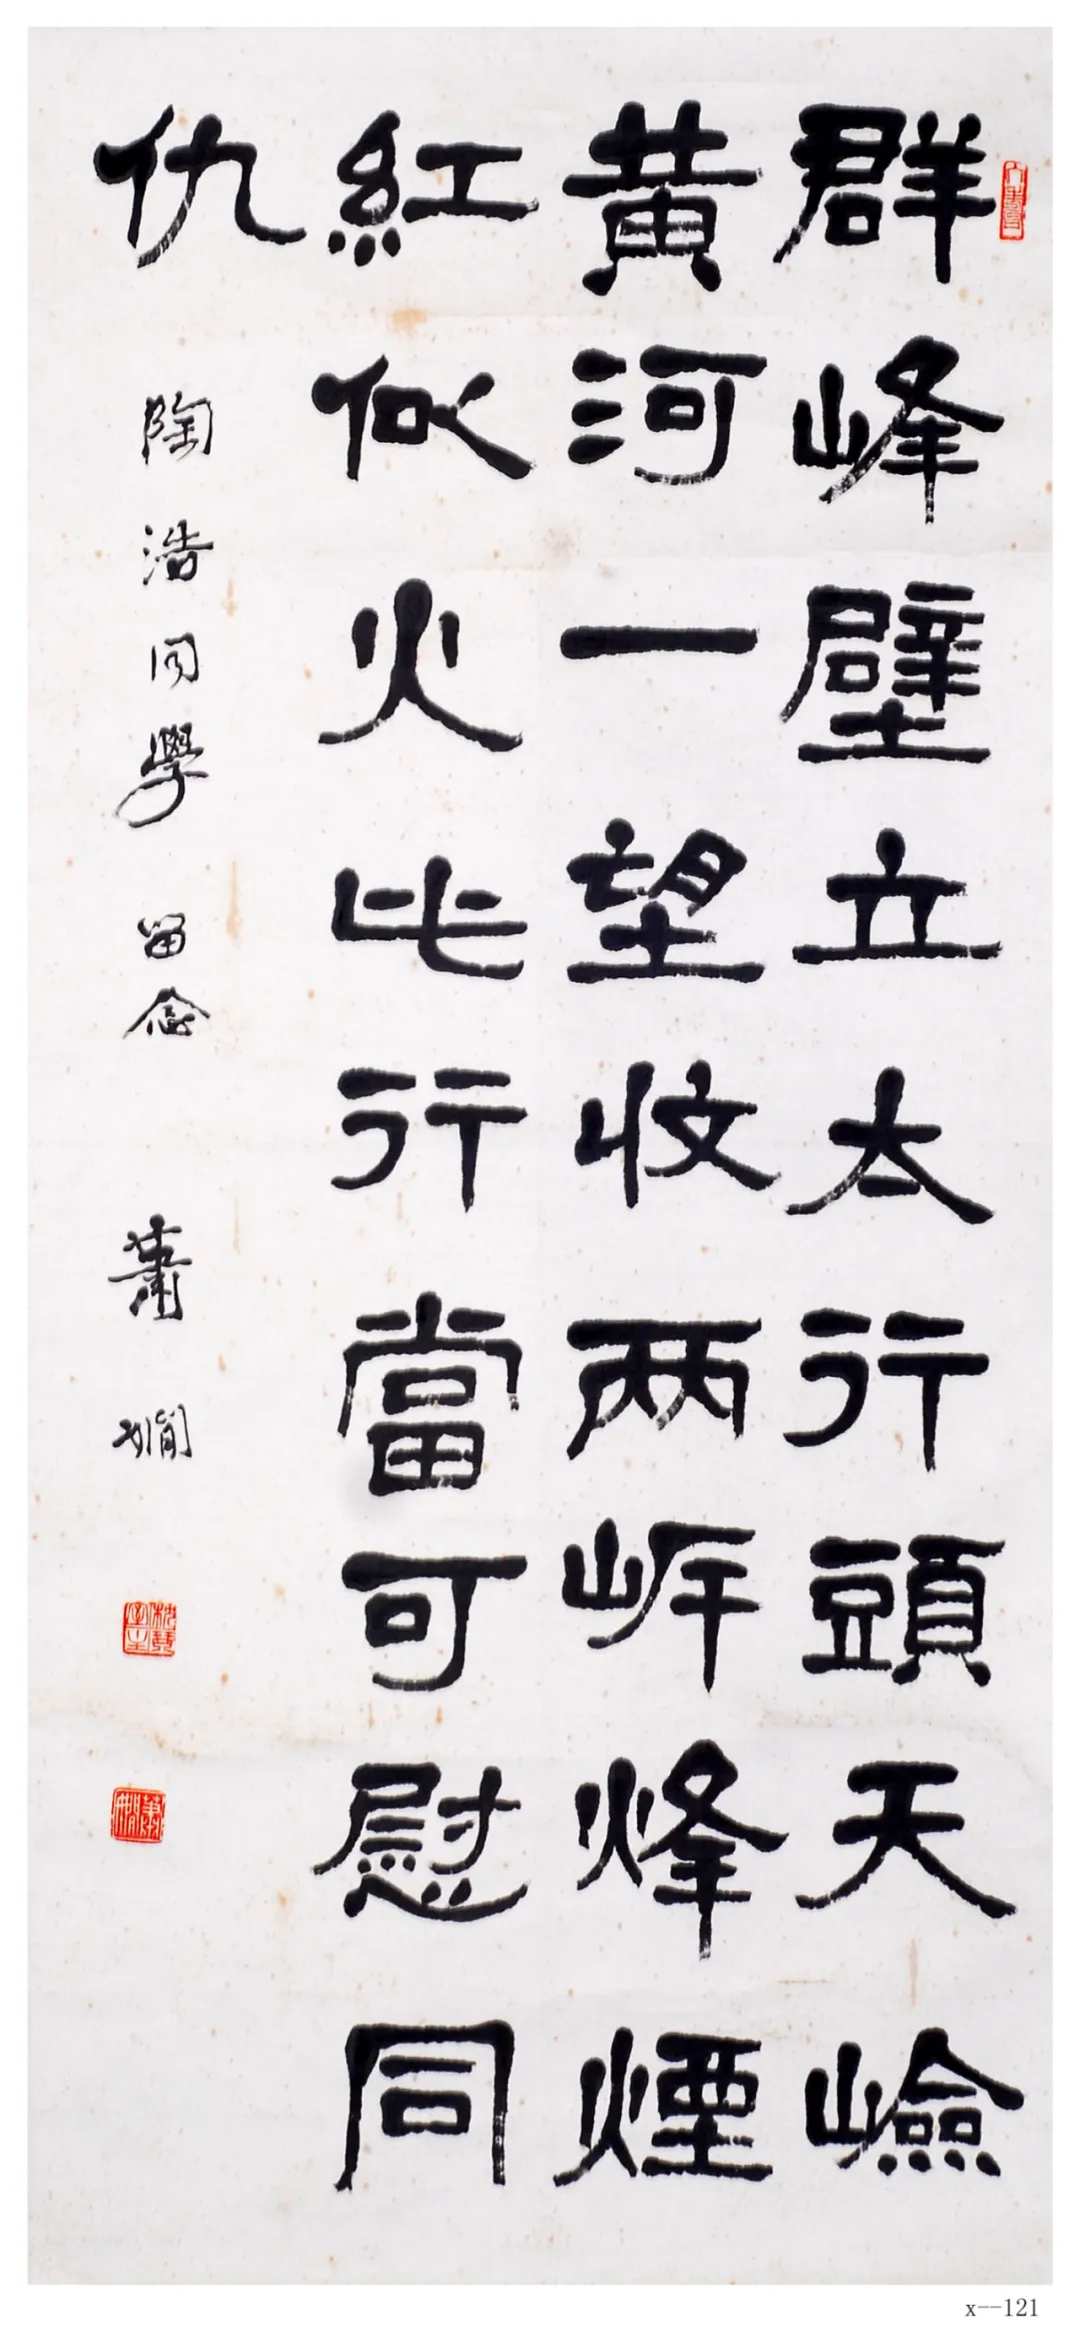 群峰壁立太行頭天嶮
黄河一望收两岍烽煙
紅似火此行當可慰同
仇
陶浩同學留念
蕭嫻
x--121